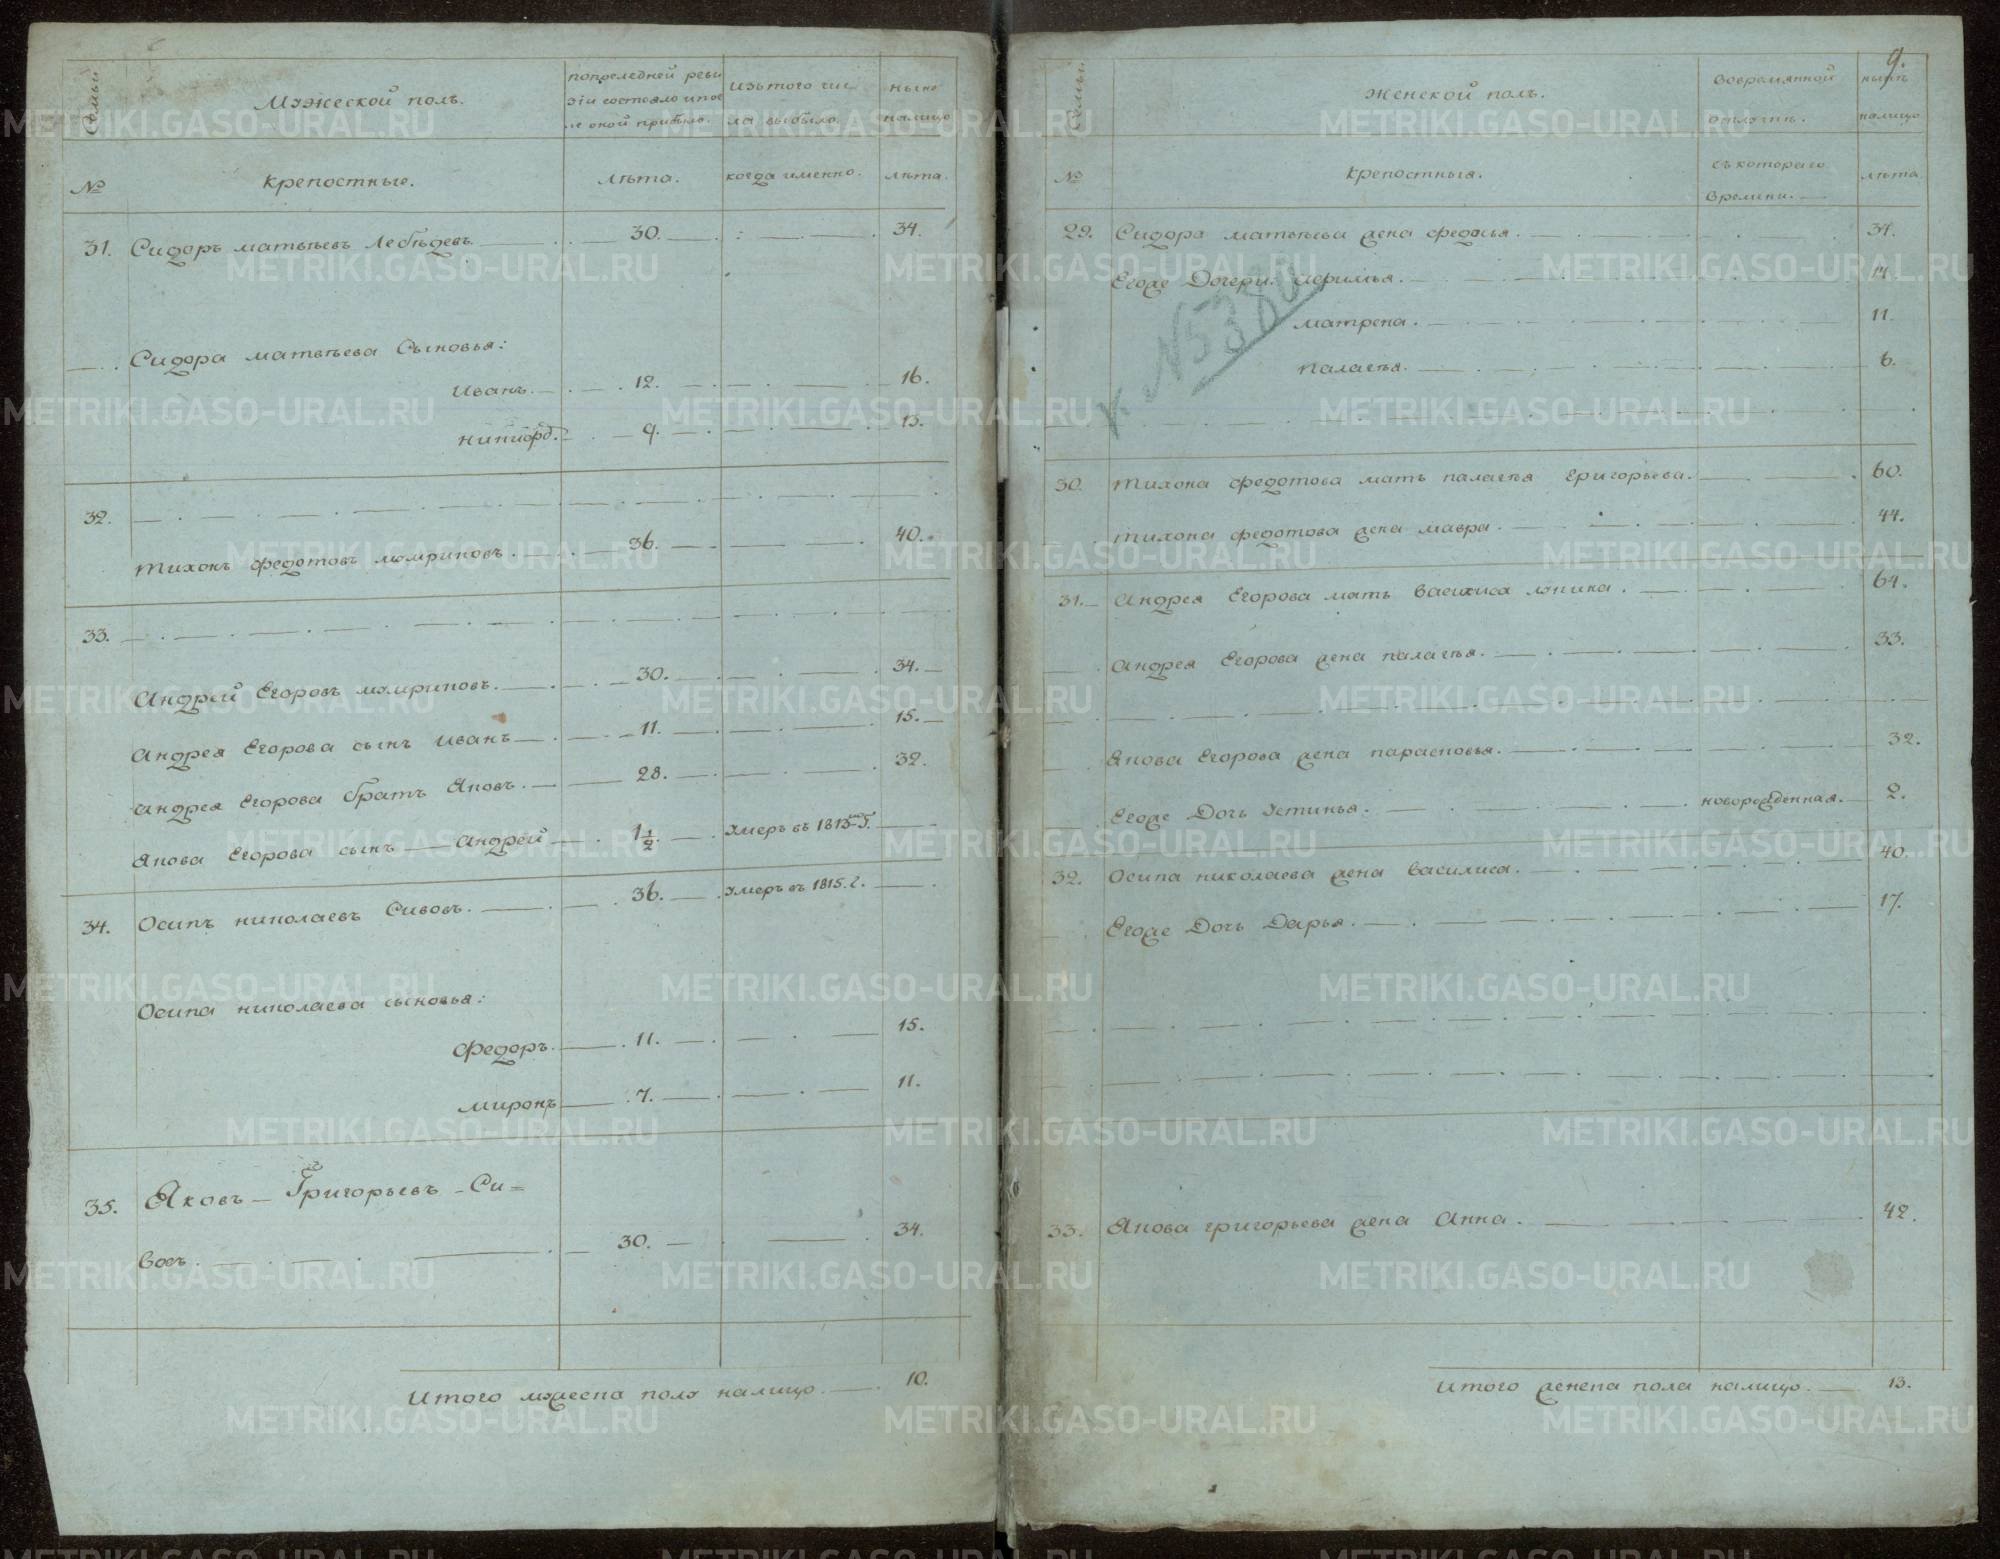 Семьи
Мужеской полъ.
попоследней реви
зіи состояло ипос
ле оной прибыло.
изътого чис
ла выбыло.
ныне
налицо
№
Крепостные.
лѣта.
когда именно.
лѣта.
31. Сидоръ матвѣевъ Лебѣдевъ 30. 34.
Сидора матвѣева Сыновья:
иванъ. 12. 16.
никифоръ. 9. 13.
32.
Тихонъ федотовъ 36. 40.
33.
Андрей Егоровъ 30. 34.
Андрея Егорова сынъ иванъ 11. 15.
Андрея Егорова братъ Яковъ. 28. 32.
Якова Егорова сынъ Андрей 1 1/2. умеръ въ 1813 г.
34. Осипъ николаевъ Сивовъ. 36. умеръ въ 1815. г.
Осипа николаева сыновья:
Федоръ. 11. 15.
миронъ 7. 11.
35. Яковъ Григорьевъ Си=
вовъ. 30. 34.
Итого мужеска полу налицо. 10.
9.
Семьи.
Женской полъ.
вовремянной
отлучке.
ныне
налицо
№
Крепостныя.
съкотораго
времени.
лѣта
29. Сидора матвѣева жена федосья. 34.
Егоже Дочери: Афимья. 14.
матрена. 11.
палагѣя. 6.
к. № 5380
30. Тихона федотова мать палагѣя григорьева. 60.
тихона федотова жена мавра. 44.
31. Андрея Егорова мать Василиса 64.
Андрея Егорова жена палагѣя. 33.
Якова Егорова жена парасковья. 32.
Егоже Дочь Устинья. новорожденная. 2.
32. Осипа николаева жена василиса. 40.
Егоже Дочь Дарья. 17.
33. Якова григорьева жена Анна. 42.
Итого женска пола налицо. 13.
METRIKI.GASO-URAL.RU